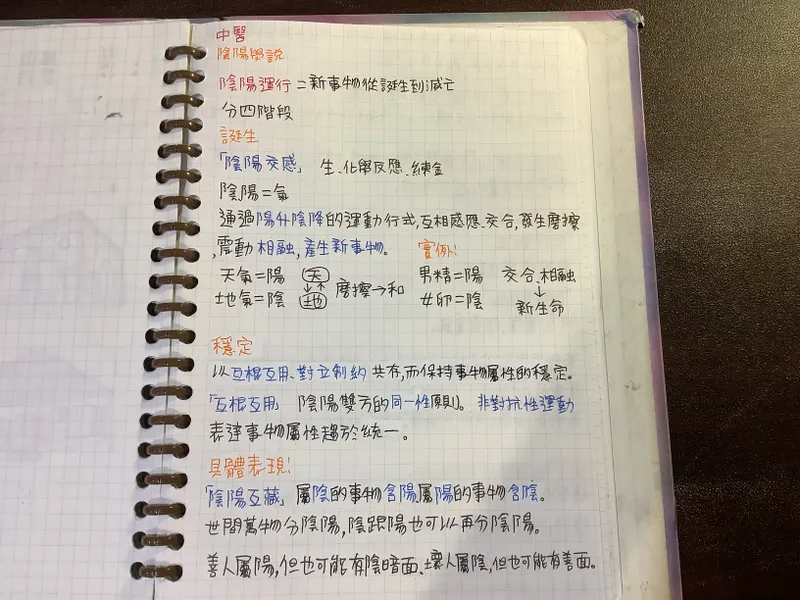 中醫
陰陽學說
陰陽運行=新事物從誕生到滅亡
分四階段
誕生
「陰陽交感」 生、化學反應、練金
陰陽=氣
通過陽升陰降的運動行式,互相感應、交合,發生磨擦
,震動相融,產生新事物。 實例!
天氣=陽 天 男精=陽 交合、相融
↓↑ 磨擦→和 ↓
地氣=陰 地 女卵=陰 新生命
穩定
以互根互用、對立制約共存,而保持事物屬性的穩定。
「互根互用」 陰陽雙方的同一性原則。非對抗性運動
表達事物屬性趨於統一。
具體表現!
「陰陽互藏」屬陰的事物含陽,屬陽的事物含陰。
世間萬物分陰陽,陰跟陽也可以再分陰陽。
善人屬陽,但也可能有陰暗面、壞人屬陰,但也可能有善面。